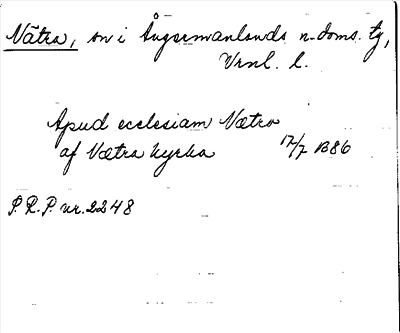 Nätra, sn i Ångermanlands n. doms. tg,
Vrnl. l.
Apud ecclesiam Nætra
af Nætra kyrka 17/7 1386
S. R. P. nr. 2248